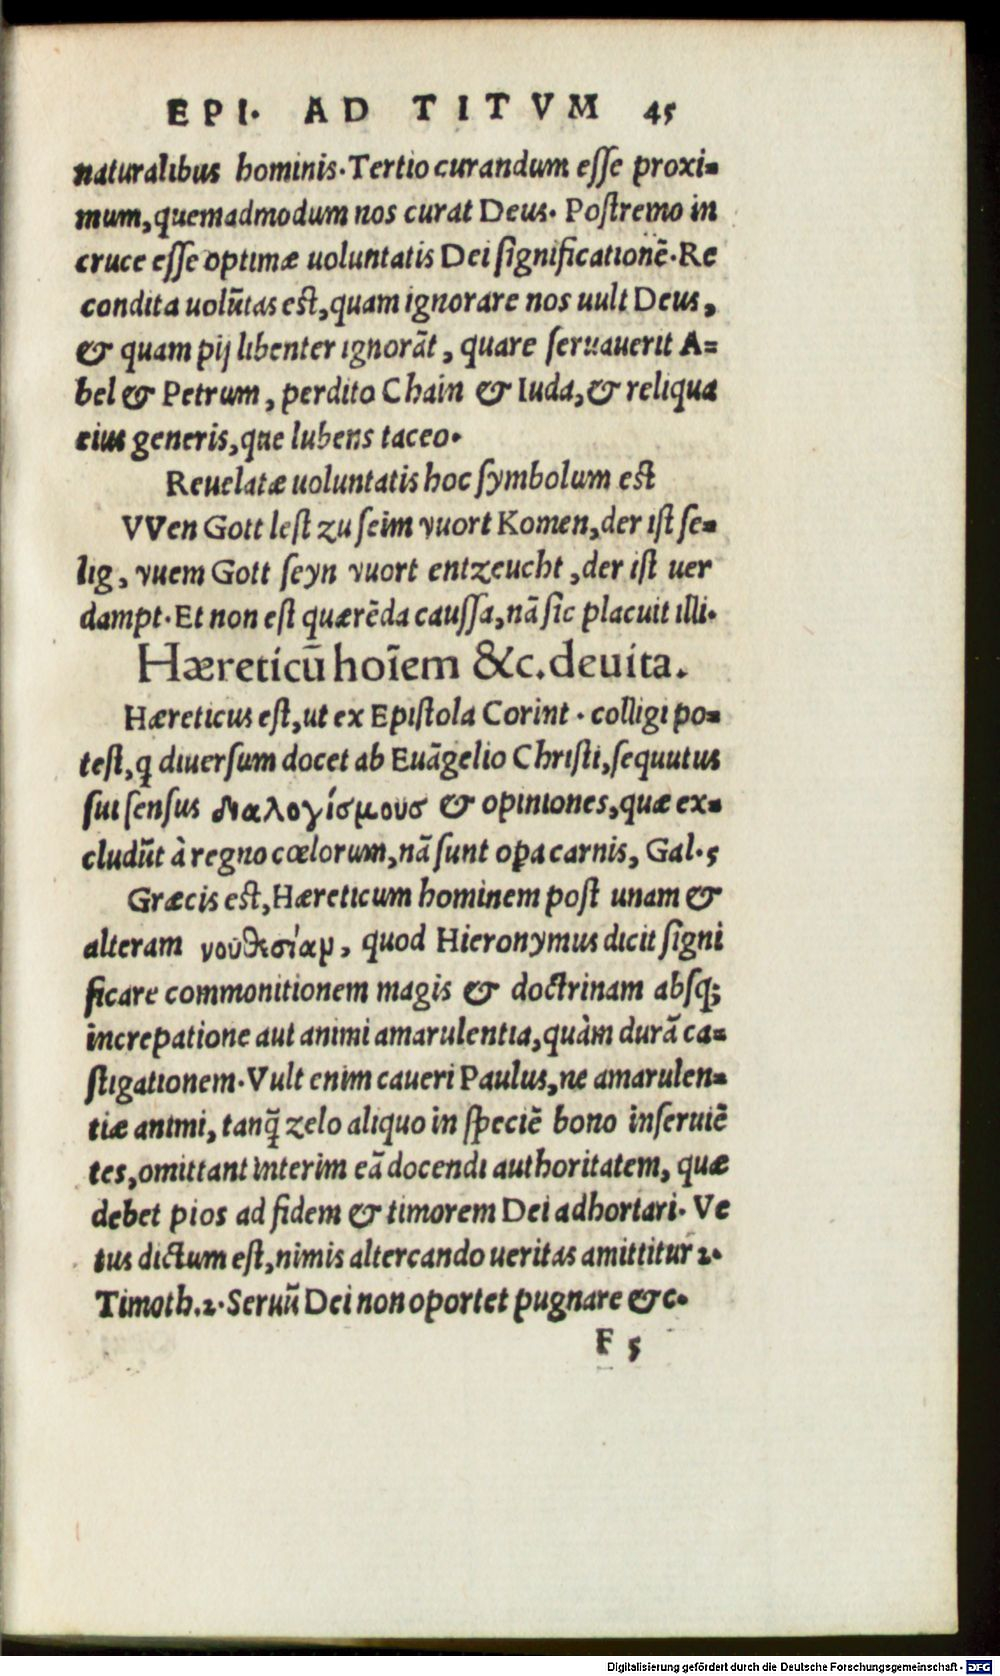 EPI. AD TITVM 45
naturalibus hominis. Tertio curandum esse proxi=
mum, quemadmodum nos curat Deus. Postremo in
cruce esse optimæ uoluntatis Dei significationẽ. Re
condita uolũtas est, quam ignorare nos uult Deus,
& quam pij libenter ignorãt, quare seruauerit A=
bel & Petrum, perdito Chain & Iuda, & reliqua
eius generis, que lubens taceo.
Reuelatæ uoluntatis hoc symbolum est
VVen Gott lest zu seim vuort Komen, der ist se=
lig, vuem Gott seyn vuort entzeucht, der ist uer
dampt. Et non est quærẽda caussa, nã sic placuit illi.
Hæreticũ hoĩem &c. deuita.
Hæreticus est, ut ex Epistola Corint. colligi po=
test, q diuersum docet ab Euãgelio Christi, sequutus
sui sensus διαλογίσμουσ & opiniones, quæ ex=
cludũt à regno cœlorum, nã sunt opa carnis, Gal. 5
Græcis est, Hæreticum hominem post unam &
alteram νουθεσίαμ, quod Hieronymus dicit signi
ficare commonitionem magis & doctrinam absq;
increpatione aut animi amarulentia, quàm durã ca=
stigationem. Vult enim caueri Paulus, ne amarulen=
tiæ animi, tanq̃ zelo aliquo in speciẽ bono inseruiẽ
tes, omittant interim eã docendi authoritatem, quæ
debet pios ad fidem & timorem Dei adhortari. Ve
tus dictum est, nimis altercando ueritas amittitur 2.
Timoth. 2. Seruũ Dei non oportet pugnare &c.
F 5
Digitalisierung gefördert durch die Deutsche Forschungsgemeinschaft - DFG